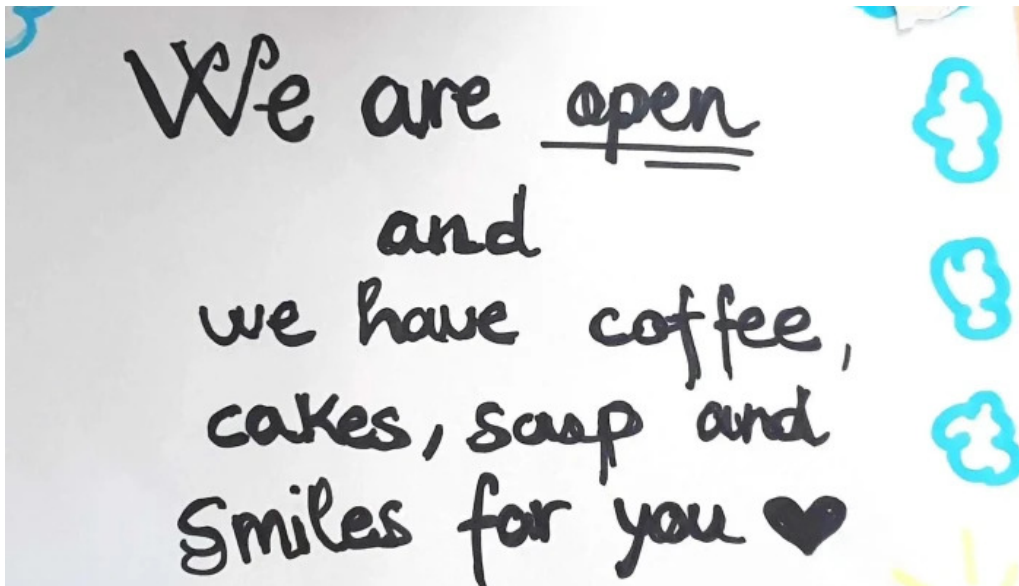 We are open
and
we have coffee,
cakes, soup and
Smiles for you ♥